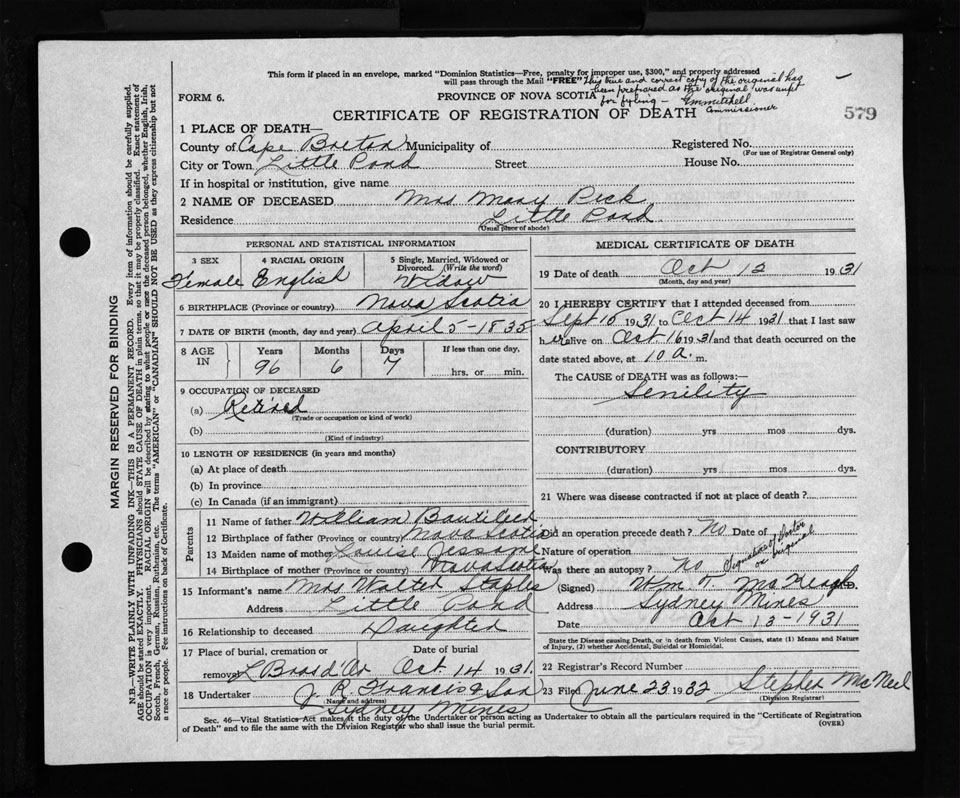 This form if placed in an envelope, marked "Dominion Statistics—Free, penalty for improper use, $300," and properly addressed
will pass through the Mail "FREE"
This true and correct copy of the original has
been prepared as the original was unfit
for fyling —
Commissioner
FORM 6.
PROVINCE OF NOVA SCOTIA
CERTIFICATE OF REGISTRATION OF DEATH
579
1 PLACE OF DEATH—
County of Cape Breton Municipality of Registered No.
(For use of Registrar General only)
City or Town Little Pond Street House No.
If in hospital or institution, give name
2 NAME OF DECEASED Mrs Mary Peck
Residence Little Pond
(Usual place of abode)
PERSONAL AND STATISTICAL INFORMATION
3 SEX 4 RACIAL ORIGIN 5 Single, Married, Widowed or
Divorced. (Write the word)
Female English Widow
6 BIRTHPLACE (Province or country) Nova Scotia
7 DATE OF BIRTH (month, day and year) April 5-1835
8 AGE IN Years Months Days If less than one day,
96 6 7 hrs. or min.
9 OCCUPATION OF DECEASED
(a) Retired
(Trade or occupation or kind of work)
(b)
(Kind of industry)
10 LENGTH OF RESIDENCE (in years and months)
(a) At place of death
(b) In province
(c) In Canada (if an immigrant)
Parents
11 Name of father William
12 Birthplace of father (Province or country) Nova Scotia
13 Maiden name of mother Louise
14 Birthplace of mother (Province or country) Nova Scotia
15 Informant's name Mrs Walter Staples
Address Little Pond
16 Relationship to deceased Daughter
17 Place of burial, cremation or Date of burial
removal L Bras d'Or Oct 14 1931.
18 Undertaker J. R. Francis & Son
(Name and address)
Sydney Mines
MEDICAL CERTIFICATE OF DEATH
19 Date of death Oct 12 1931
(Month, day and year)
20 I HEREBY CERTIFY that I attended deceased from
Sept 15 1931 to Oct 14 1931 that I last saw
her alive on Oct 16 1931 and that death occurred on the
date stated above, at 10 a. m.
The CAUSE of DEATH was as follows:—
Senility
(duration) yrs mos dys.
CONTRIBUTORY
(duration) yrs mos dys.
21 Where was disease contracted if not at place of death?
Did an operation precede death? No Date of
Nature of operation
Was there an autopsy? No
Signature of Doctor
on original
(Signed) Wm. T. M.D.
Address Sydney Mines
Date Oct 13-1931
State the Disease causing Death, or in death from Violent Causes, state (1) Means and Nature
of Injury, (2) whether Accidental, Suicidal or Homicidal.
22 Registrar's Record Number
23 Filed June 23 1932 Stephen MacNeil
(Division Registrar)
Sec. 46—Vital Statistics Act makes it the duty of the Undertaker or person acting as Undertaker to obtain all the particulars required in the "Certificate of Registration
of Death" and to file the same with the Division Registrar who shall issue the burial permit.
(OVER)
MARGIN RESERVED FOR BINDING
N.B.—WRITE PLAINLY WITH UNFADING INK—THIS IS A PERMANENT RECORD. Every item of information should be carefully supplied.
AGE should be stated EXACTLY. PHYSICIANS should STATE CAUSE OF DEATH in plain terms, so that it may be properly classified. Exact statement of
OCCUPATION is very important. RACIAL ORIGIN will be described by stating to what people or race the deceased person belonged, whether English, Irish,
Scotch, French, German, Russian, Ruthenian, etc. The terms "AMERICAN" or "CANADIAN" SHOULD NOT BE USED as they express citizenship but not
a race or people. Fee instructions on back of Certificate.